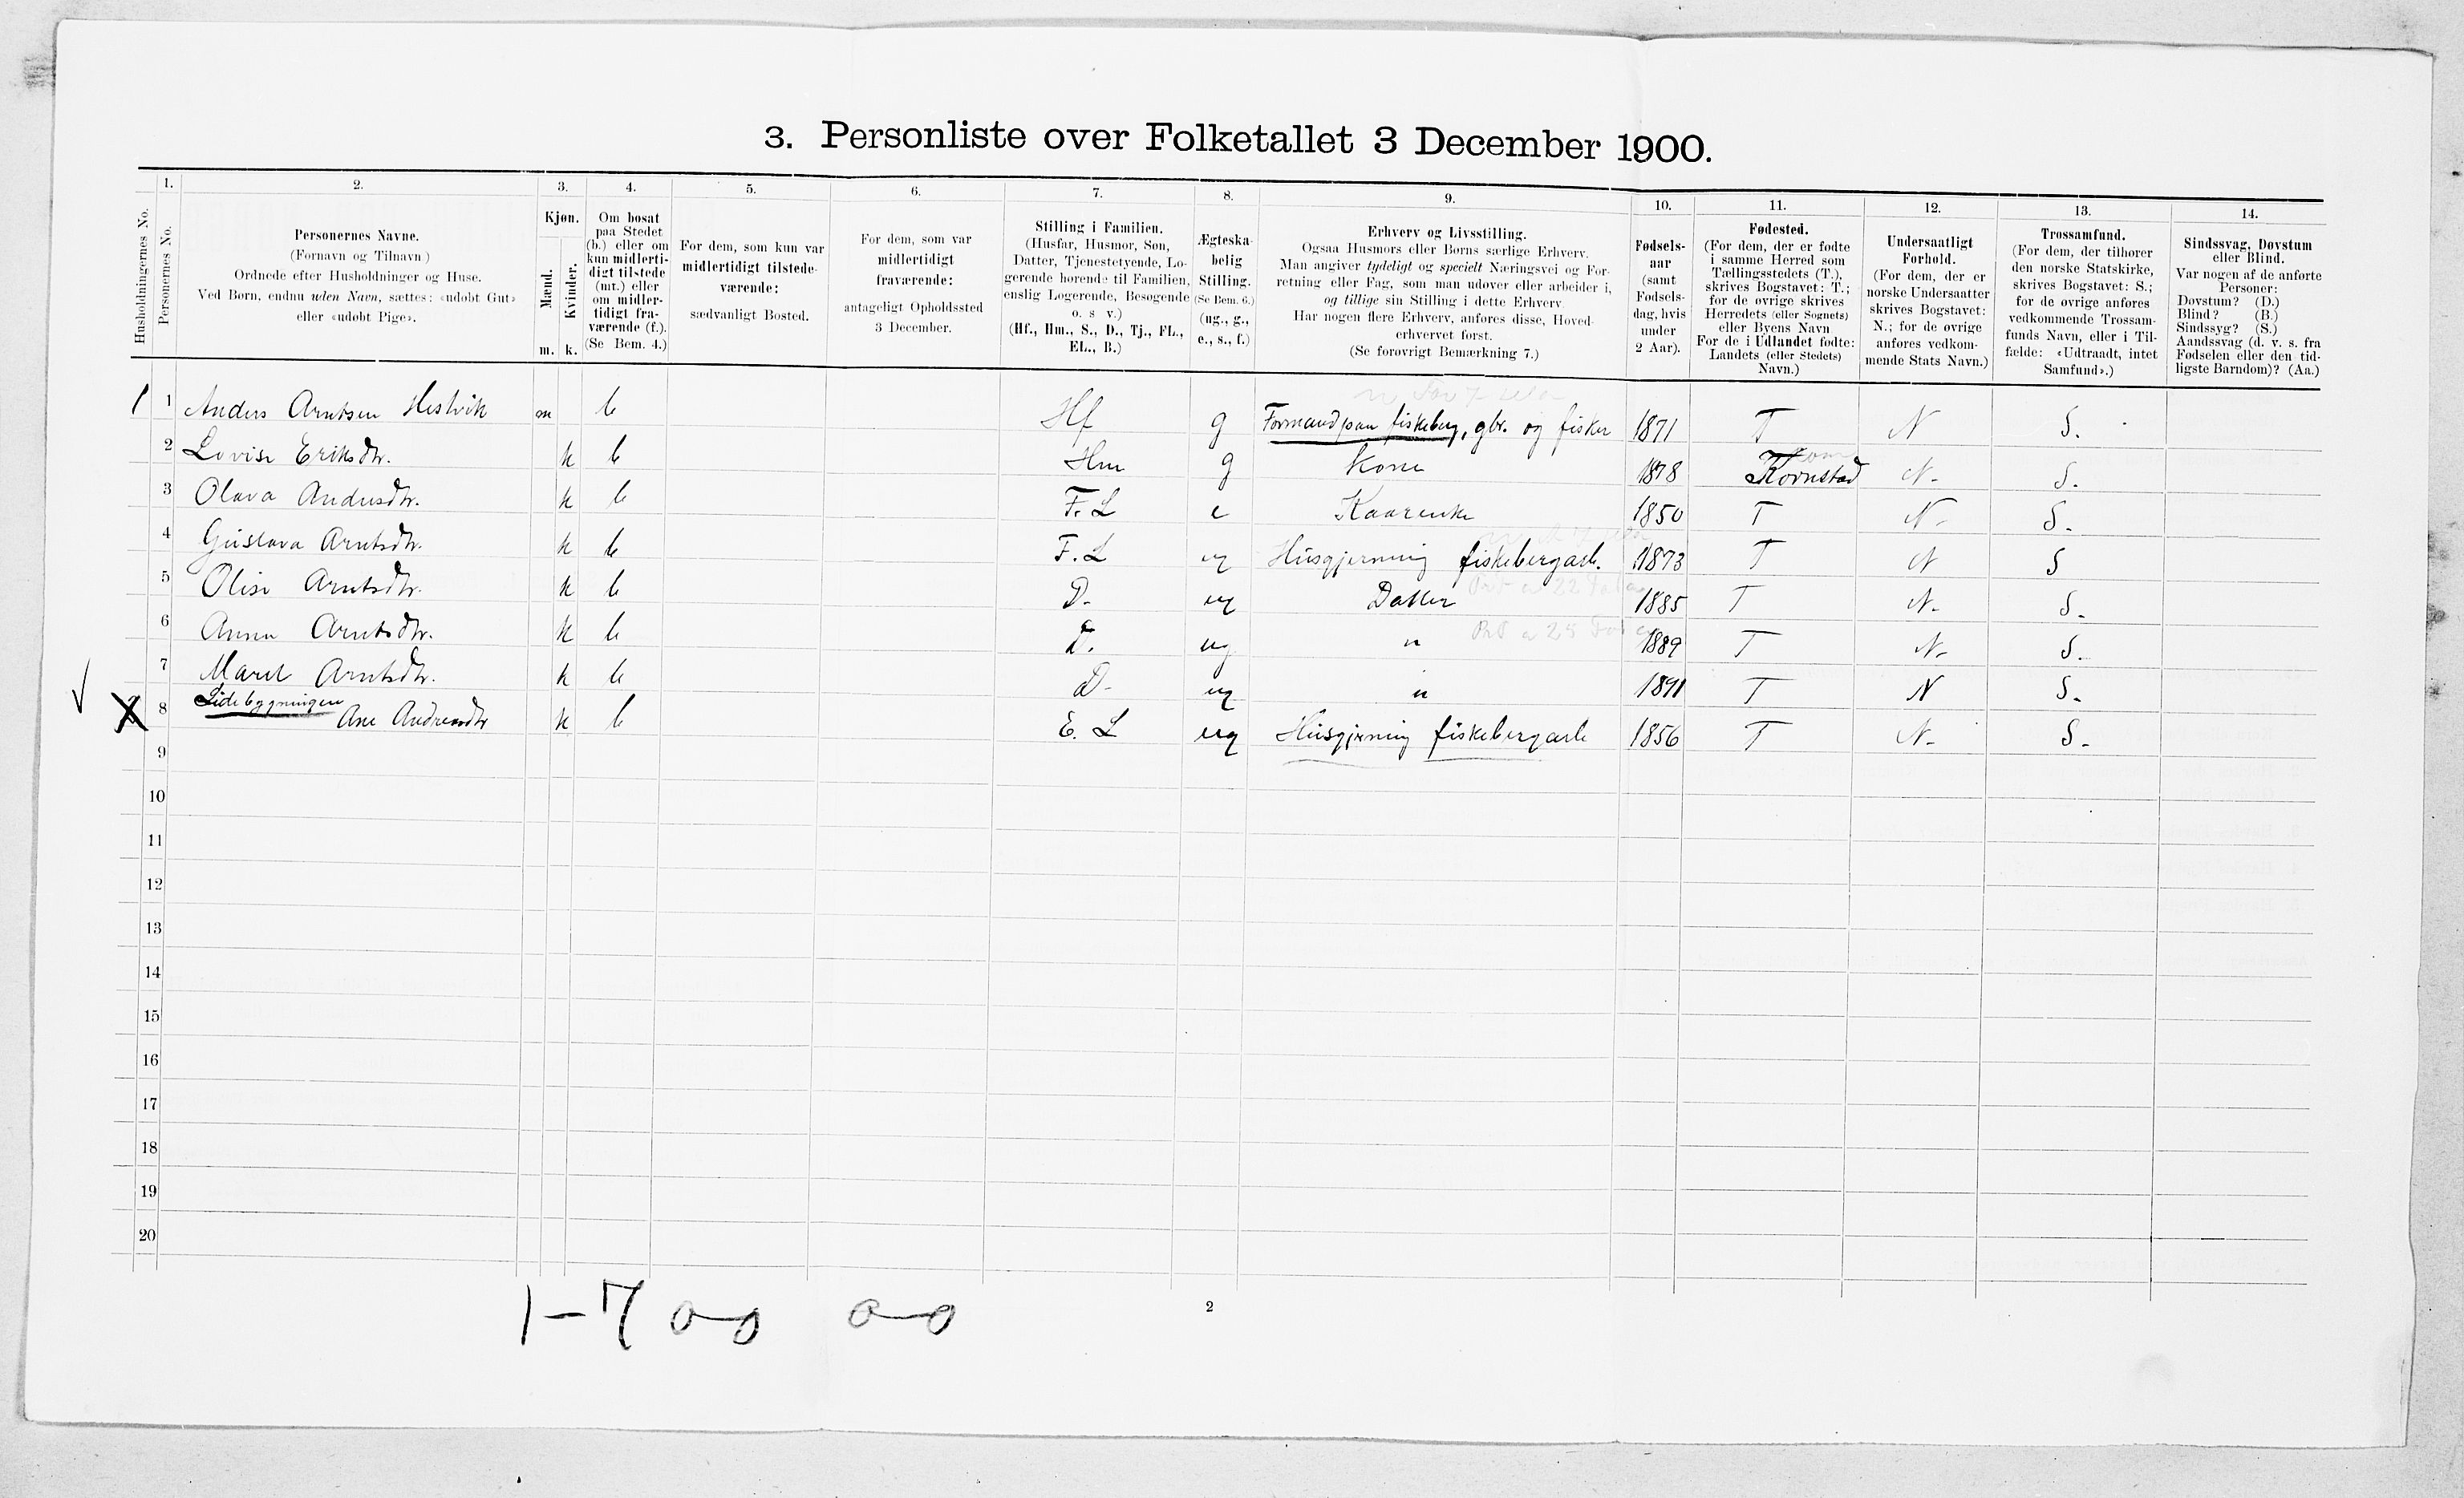 3. Personliste over Folketallet 3 December 1900.
1. 2. 3. 4. 5. 6. 7. 8. 9. 10. 11. 12. 13. 14.
Husholdningernes No.
Personernes No.
Personernes Navne.
(Fornavn og Tilnavn)
Ordnede efter Husholdninger og Huse.
Ved Børn, endnu uden Navn, sættes: «udøbt Gut»
eller «udøbt Pige».
Kjøn.
Mænd.
Kvinder.
m. k.
Om bosat
paa Stedet
(b.) eller om
kun midlerti-
digt tilstede
(mt.) eller
om midler-
tidigt fra-
værende (f.).
(Se Bem. 4.)
For dem, som kun var
midlertidigt tilstede-
værende:
sædvanligt Bosted.
For dem, som var
midlertidigt
fraværende:
antageligt Opholdssted
3 December.
Stilling i Familien.
(Husfar, Husmor, Søn,
Datter, Tjenestetyende, Lo-
gerende hørende til Familien,
enslig Logerende, Besøgende
o. s v.)
(Hf., Hm., S., D., Tj., FL.,
EL., B.)
Ægteska-
belig
Stilling.
(Se Bem. 6.)
(ug., g.,
e., s., f.)
Erhverv og Livsstilling.
Ogsaa Husmors eller Børns særlige Erhverv.
Man angiver tydeligt og specielt Næringsvei og For-
retning eller Fag, som man udøver eller arbeider i,
og tillige sin Stilling i dette Erhverv.
Har nogen flere Erhverv, anføres disse, Hoved-
erhvervet først.
(Se forøvrigt Bemærkning 7.)
Fødsels-
aar
(samt
Fødsels-
dag, hvis
under
2 Aar).
Fødested.
(For dem, der er fødte
i samme Herred som
Tællingsstedets (T.),
skrives Bogstavet: T.;
for de øvrige skrives
Herredets (eller Sognets)
eller Byens Navn
For de i Udlandet fødte:
Landets (eller Stedets)
Navn.)
Undersaatligt
Forhold.
(For dem, der er
norske Undersaatter
skrives Bogstavet:
N.; for de øvrige
anføres vedkom-
mende Stats Navn.)
Trossamfund.
(For dem, der tilhører
den norske Statskirke,
skrives Bogstavet: S.;
for de øvrige anføres
vedkommende Trossam-
funds Navn, eller i Til-
fælde: «Udtraadt, intet
Samfund».)
Sindssvag, Døvstum
eller Blind.
Var nogen af de anførte
Personer:
Døvstum? (D.)
Blind? (B.)
Sindssyg? (S.)
Aandssvag (d. v. s. fra
Fødselen eller den tid-
ligste Barndom)? (Aa.)
1 1 Anders Arntsen Hestvik m b Hf g Formand paa fiskeberg, gbr. og fisker 1871 T N S.
2 Lovise Eriksdtr. k b Hm g Kone 1878 Kornstad N. S.
3 Olava Andersdtr. k b F. L e Kaarenke 1850 T N. S.
4 Gustava Arntsdtr. k b F. L ug Husgjerning fiskebergarb. 1873 T N S
5 Olise Arntsdtr. k b D. ug Datter 1885 T N. S.
6 Anna Arntsdtr. k b D. ug " 1889 T N. S.
7 Marit Arntsdtr. k b D. ug " 1891 T N S.
Sidebygningen
8 Ane Andreasdtr k b E. L ug Husgjerning fiskebergarb 1856 T N. S.
9
10
11
12
13
14
15
16
17
18
19
20
1-7 0-0 0-0
2